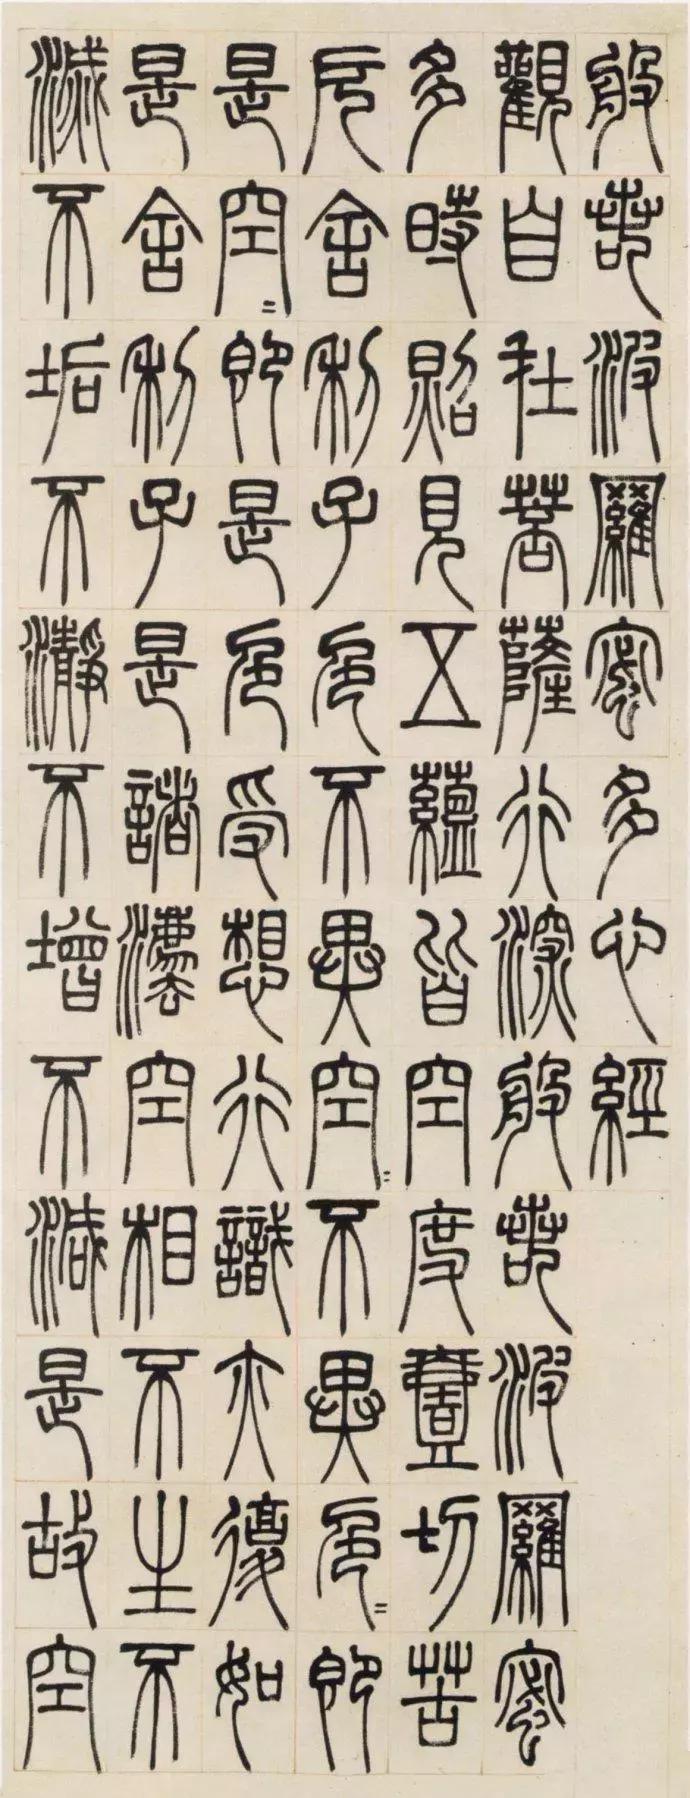 般若波羅蜜多心經
觀自在菩薩行深般若波羅蜜
多時照見五蘊皆空度壹切苦
厄舍利子色不異空〻不異色〻即
是空〻即是色受想行識亦復如
是舍利子是諸灋空相不生不
滅不垢不瀞不增不減是故空